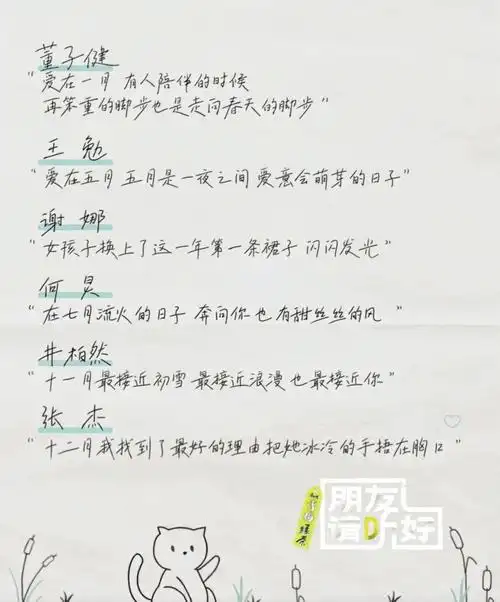 董子健
“爱在一月 有人陪伴的时候
再笨重的脚步也是走向春天的脚步”
王勉
“爱在五月 五月是一夜之间 爱意会萌芽的日子”
谢娜
“女孩子换上了这一年第一条裙子 闪闪发光”
何炅
“在七月流火的日子 奔向你也有甜丝丝的风”
井柏然
“十一月最接近初雪 最接近浪漫 也最接近你”
张杰
“十二月我找到了最好的理由把她冰冷的手捂在胸口”
朋友
请D好